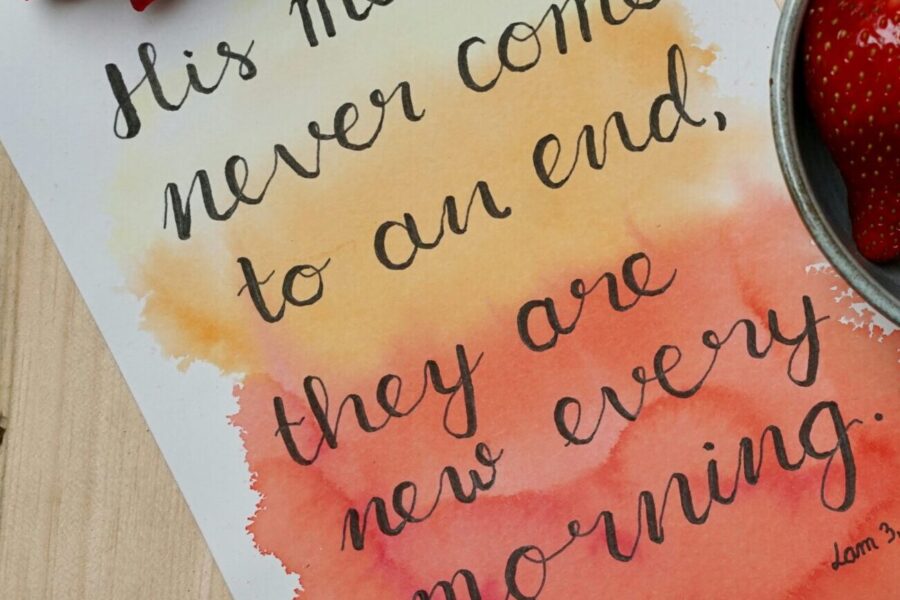 His
never come
to an end,
they are
new every
morning.
Lam 3,